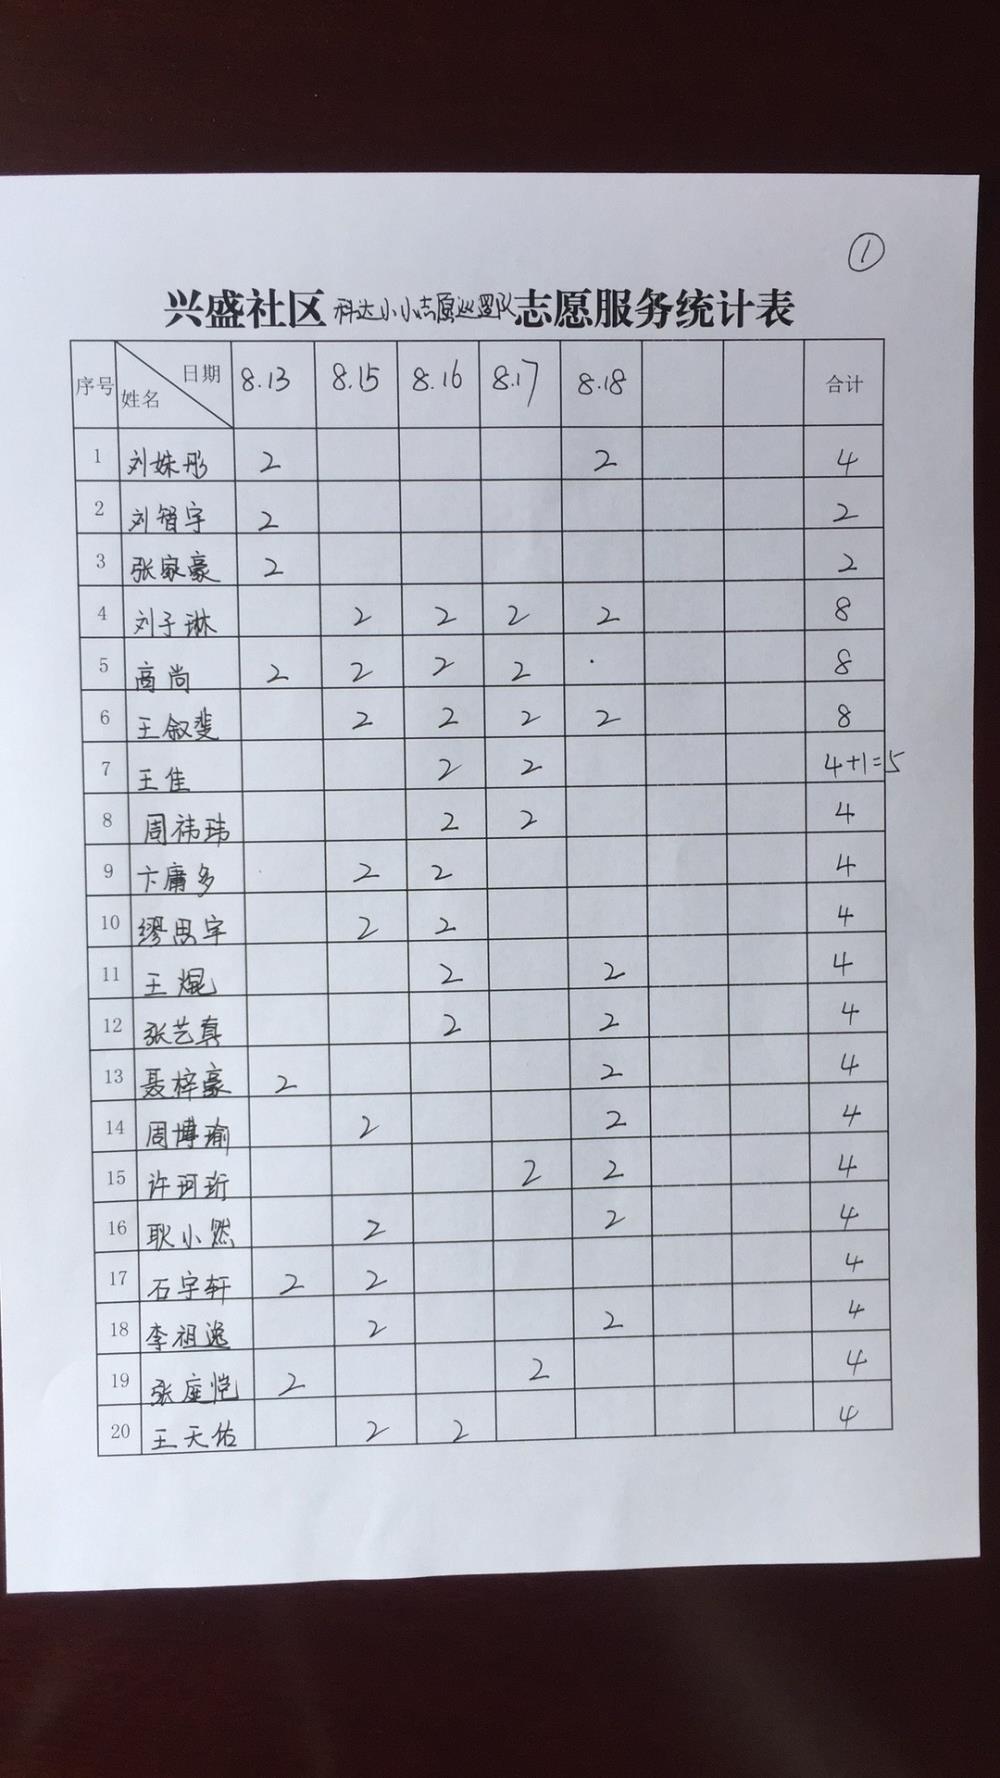 ①
兴盛社区科达小小志愿巡逻队志愿服务统计表
序号 日期 姓名 8.13 8.15 8.16 8.17 8.18 合计
1 刘姝彤 2 2 4
2 刘智宇 2 2
3 张家豪 2 2
4 刘子琳 2 2 2 2 8
5 商尚 2 2 2 2 8
6 王叙斐 2 2 2 2 8
7 王佳 2 2 4+1=5
8 周祎玮 2 2 4
9 卞庸多 2 2 4
10 缪思宇 2 2 4
11 王焜 2 2 4
12 张艺真 2 2 4
13 聂梓豪 2 2 4
14 周博瑜 2 2 4
15 许珂珩 2 2 4
16 耿小然 2 2 4
17 石宇轩 2 2 4
18 李祖逸 2 2 4
19 张庭恺 2 2 4
20 王天佑 2 2 4